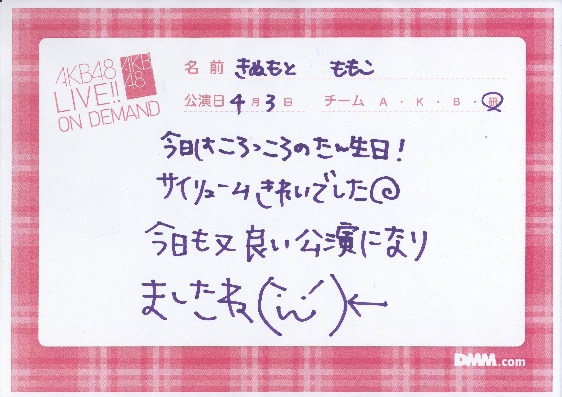 AKB48
LIVE!!
ON DEMAND
AKB
48
名前 きぬもと ももこ
公演日 4月3日 チーム A・K・B・研
今日はころっころのたん生日!
サイリュームきれいでした
今日も又良い公演になり
ましたね
DMM.com